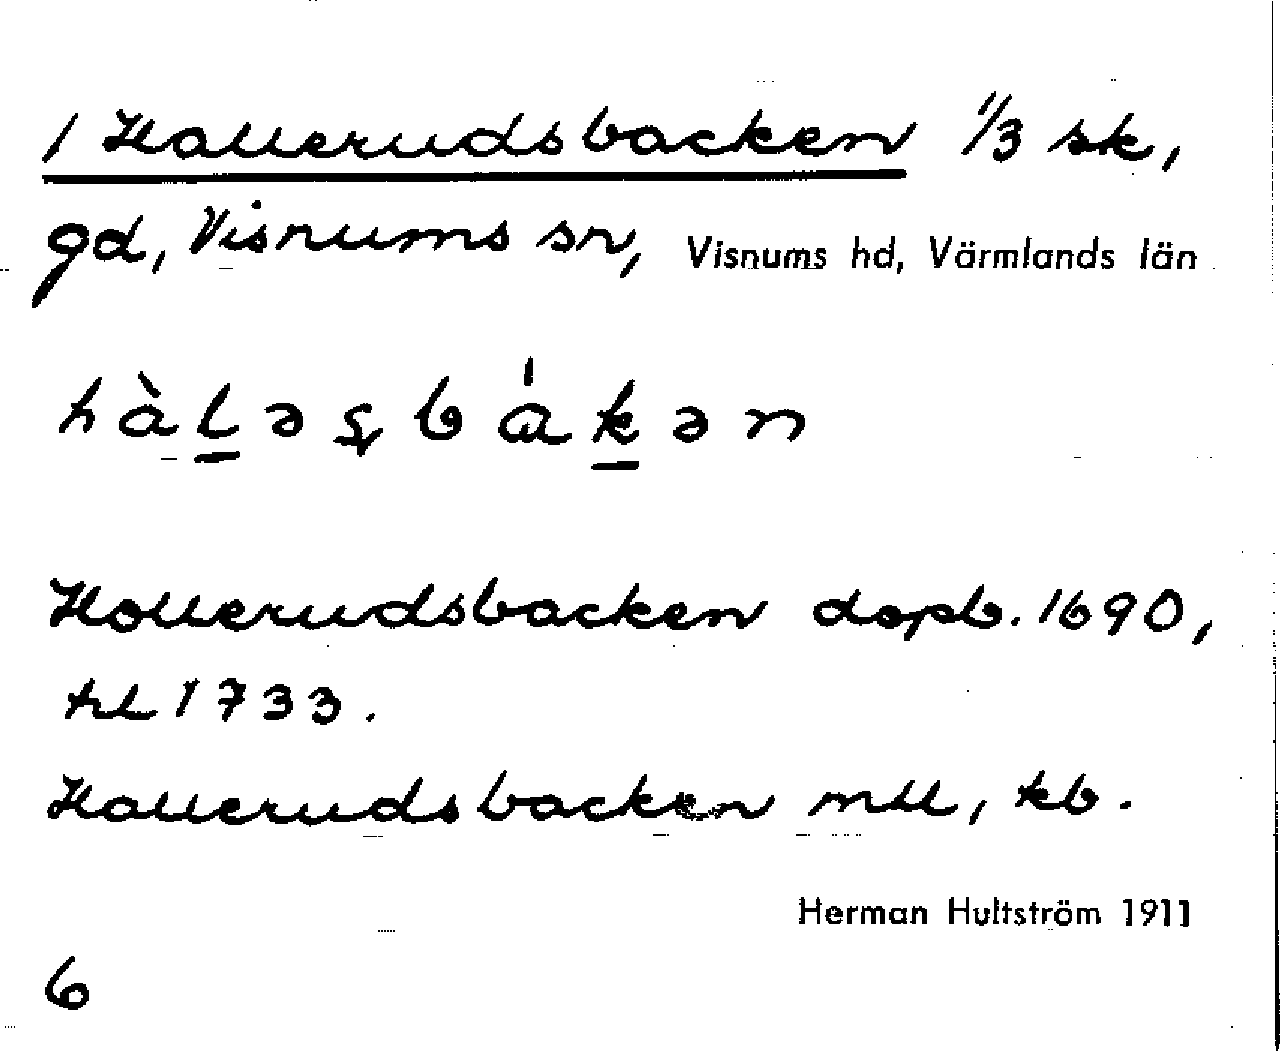 1 Hallerudsbacken 1/3 sk,
gd, Visnums sn, Visnums hd, Värmlands län
hàl̲əʂbák̲ən
Hollerudsbacken dopb. 1690,
hl 1733.
Hallerudsbacken mtl, kb.
Herman Hultström 1911
6